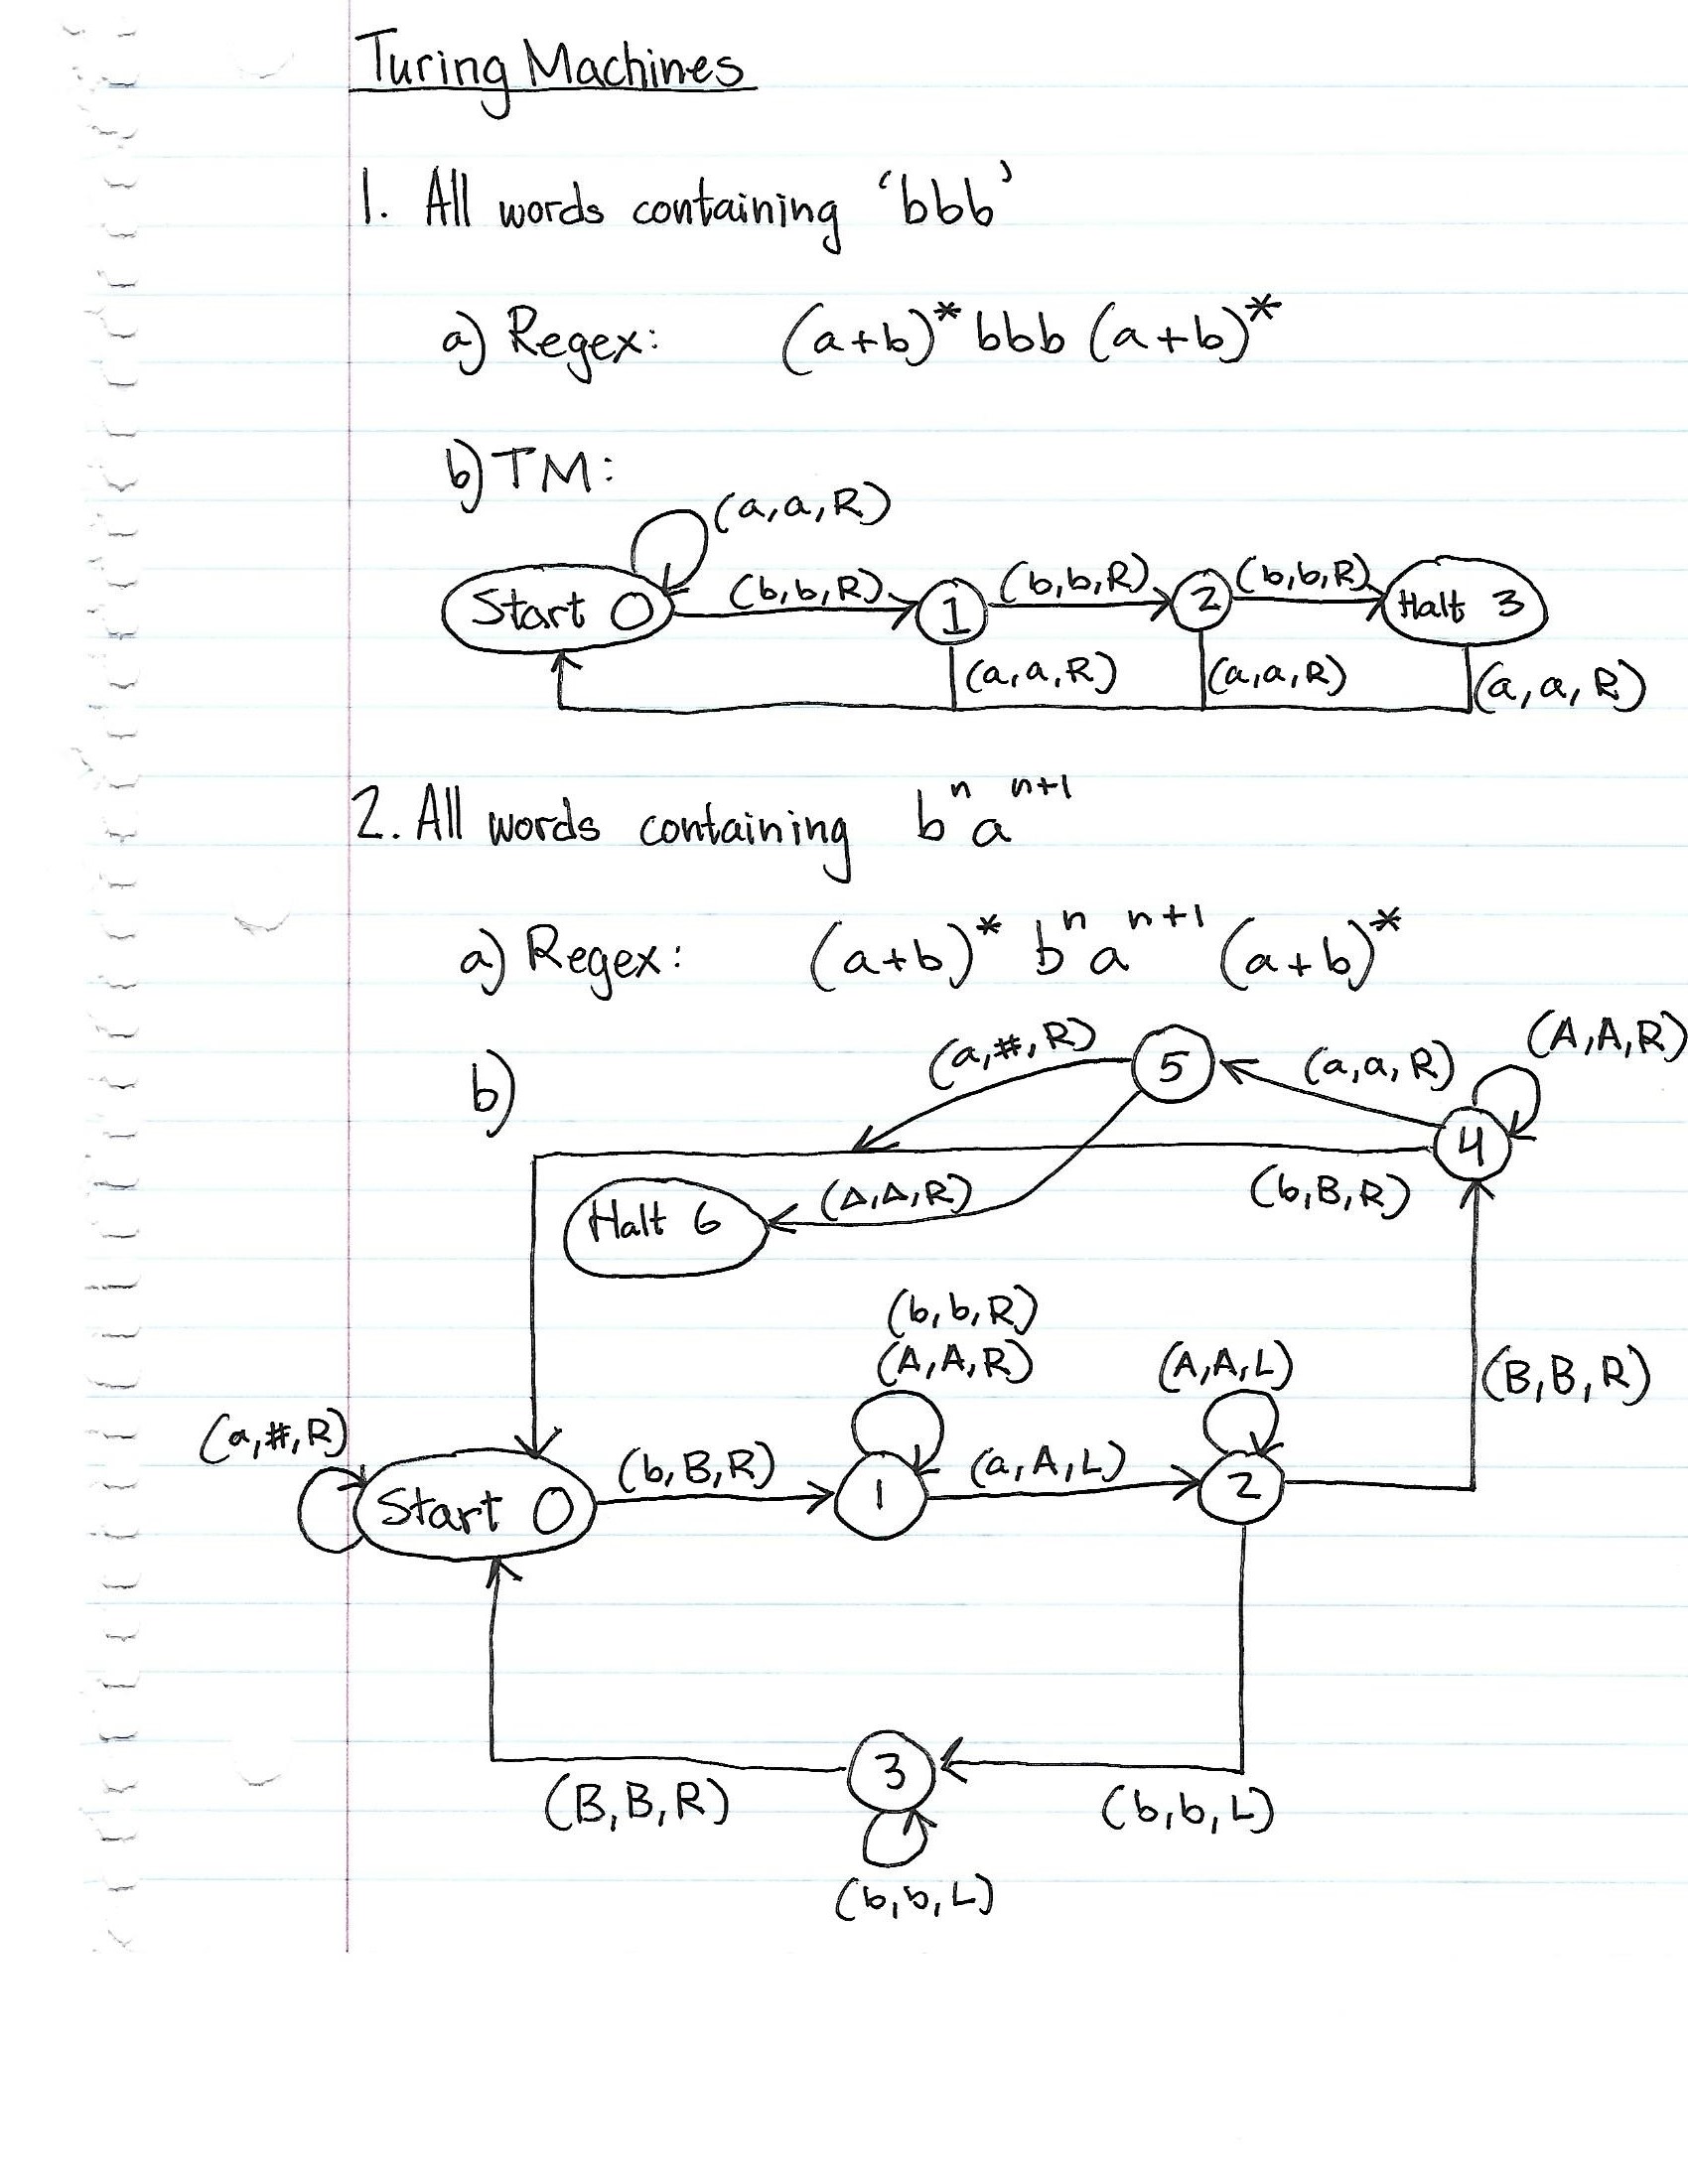 Turing Machines
1. All words containing ‘bbb’
a) Regex: (a+b)* bbb (a+b)*
b) TM:
(a,a,R)
Start 0 (b,b,R) 1 (b,b,R) 2 (b,b,R) Halt 3
(a,a,R) (a,a,R) (a,a,R)
2. All words containing bⁿ aⁿ⁺¹
a) Regex: (a+b)* bⁿ aⁿ⁺¹ (a+b)*
b) (a,#,R) 5 (a,a,R) (A,A,R)
4
Halt 6 (Δ,Δ,R) (b,B,R)
(b,b,R)
(A,A,R) (A,A,L) (B,B,R)
(a,#,R)
Start 0 (b,B,R) 1 (a,A,L) 2
3
(B,B,R) (b,b,L)
(b,b,L)